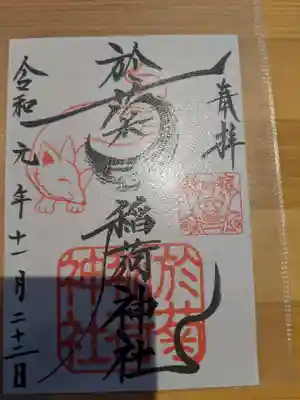 奉拝
於菊稲荷神社
於菊稲荷神社
令和元年十一月二十三日